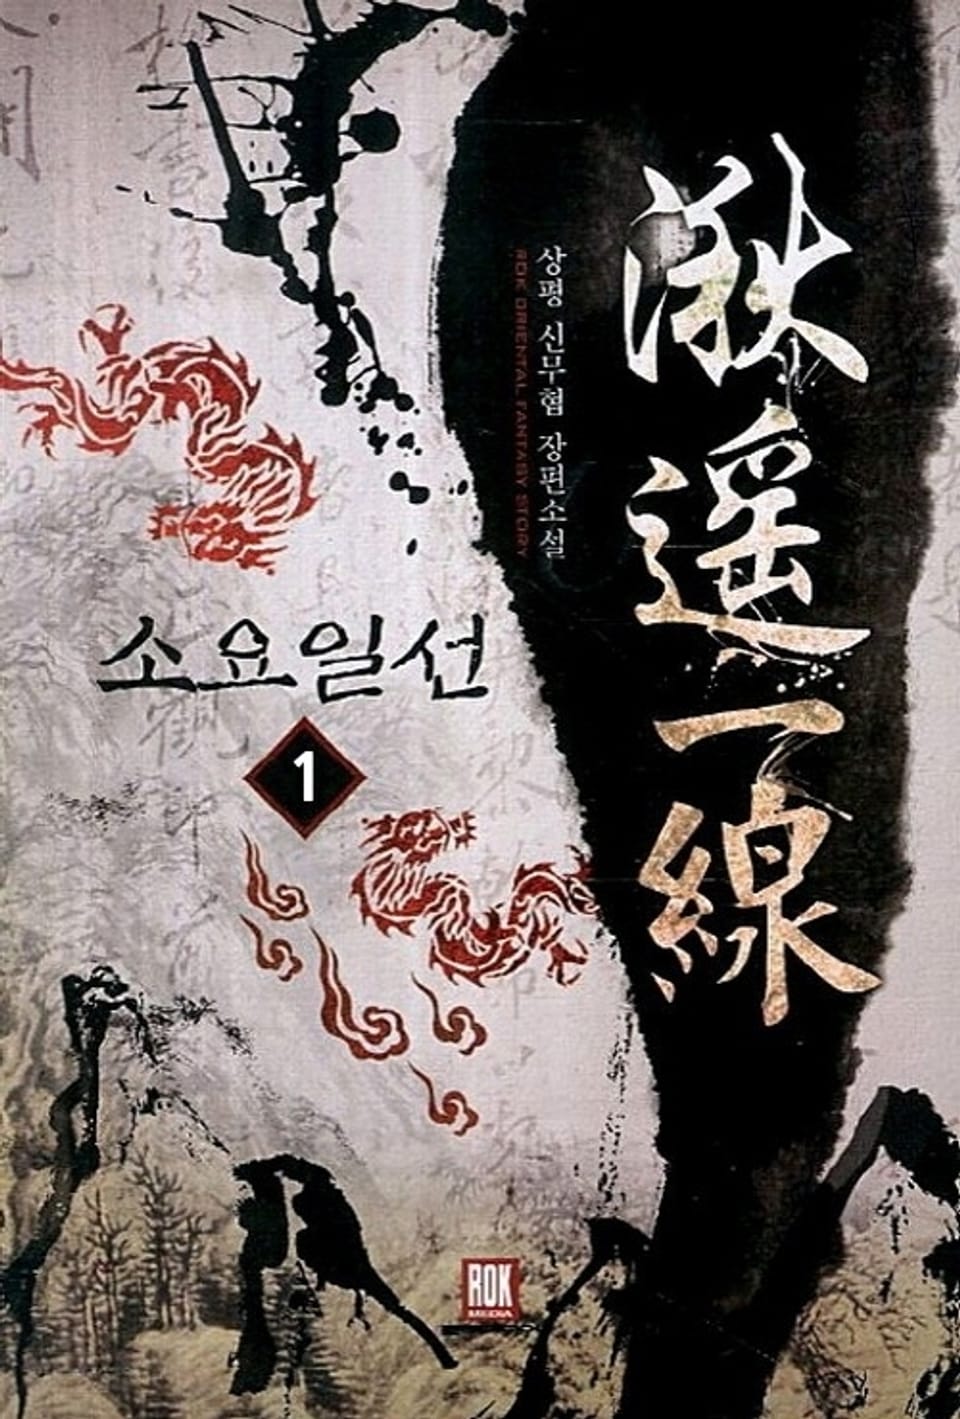 遙一線
상평 신무협 장편소설
ROK ORIENTAL FANTASY STORY
소요일선
1
ROK
MEDIA